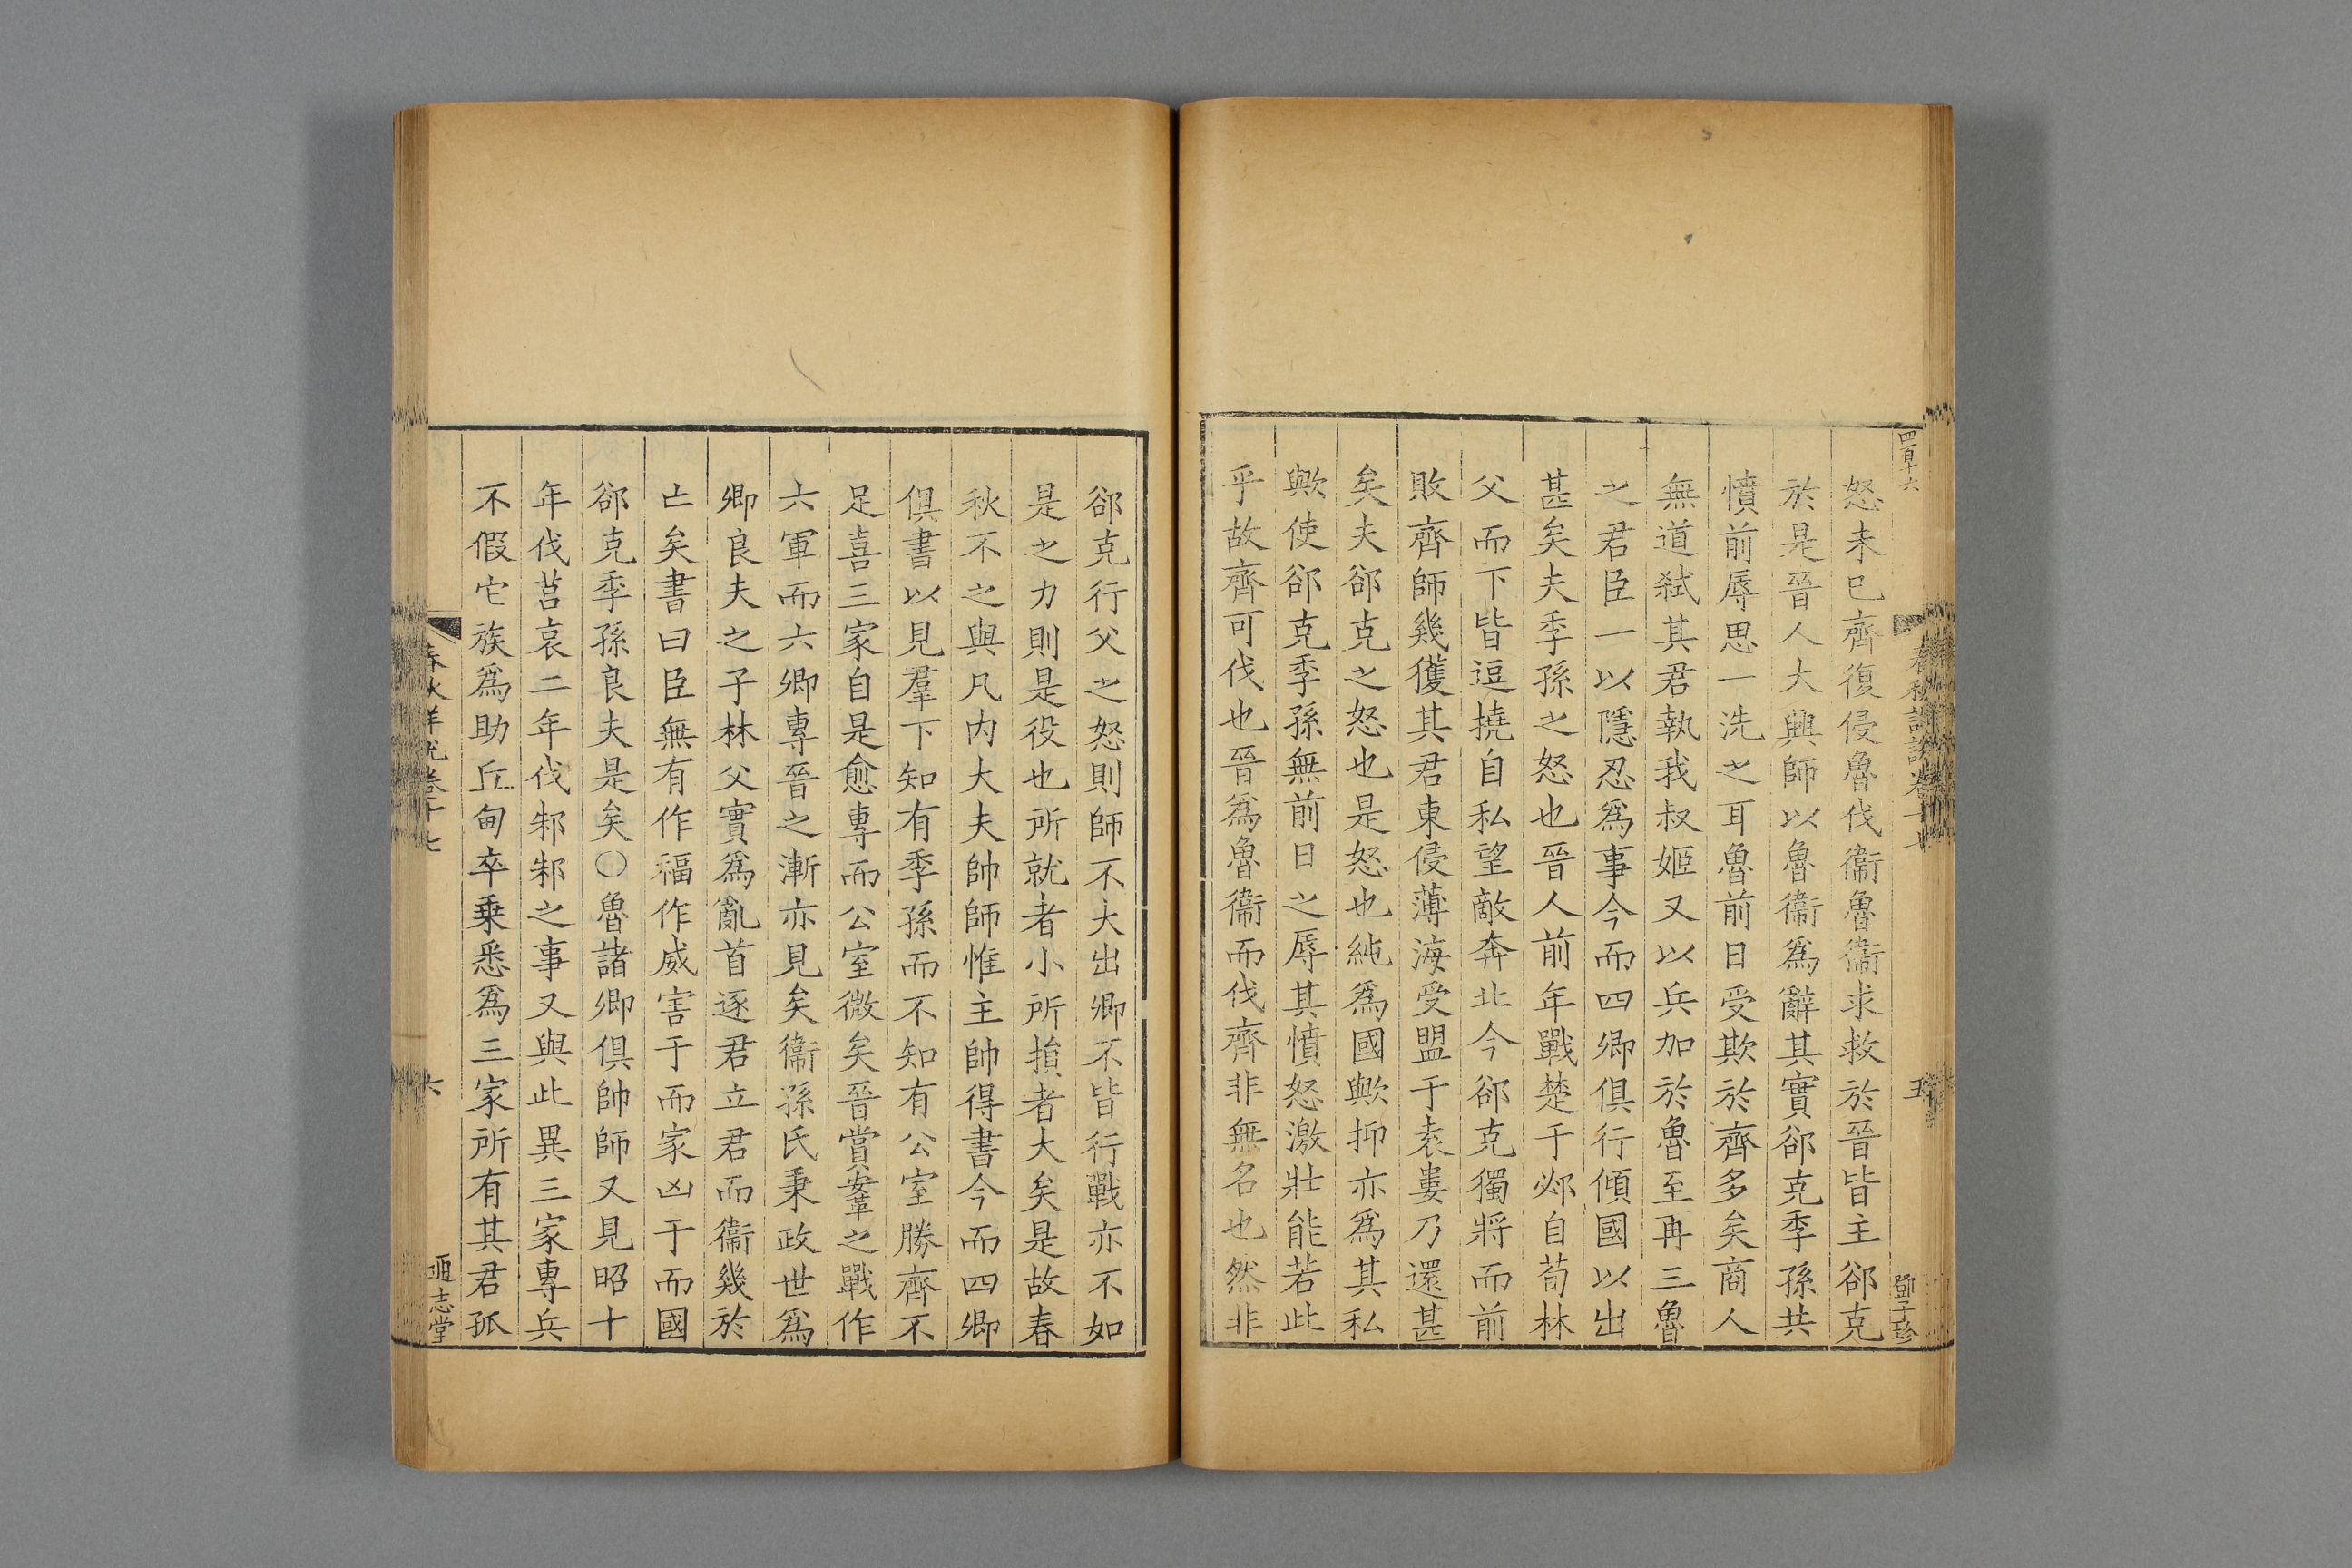 四百十六
春秋詳說卷十七
五
鄧子珍
怒未已齊復侵魯伐衞魯衞求救於晉皆主郤克
於是晉人大興師以魯衞爲辭其實郤克季孫共
憤前辱思一洗之耳魯前日受欺於齊多矣商人
無道弑其君執我叔姬又以兵加於魯至再三魯
之君臣一以隱忍爲事今而四卿俱行傾國以出
甚矣夫季孫之怒也晉人前年戰楚于邲自荀林
父而下皆逗撓自私望敵奔北今郤克獨將而前
敗齊師幾獲其君東侵薄海受盟于袁婁乃還甚
矣夫郤克之怒也是怒也純爲國歟抑亦爲其私
歟使郤克季孫無前日之辱其憤怒激壯能若此
乎故齊可伐也晉爲魯衞而伐齊非無名也然非
郤克行父之怒則師不大出卿不皆行戰亦不如
是之力則是役也所就者小所損者大矣是故春
秋不之與凡内大夫帥師惟主帥得書今而四卿
俱書以見羣下知有季孫而不知有公室勝齊不
足喜三家自是愈專而公室微矣晉賞鞌之戰作
六軍而六卿專晉之漸亦見矣衞孫氏秉政世爲
卿良夫之子林父實爲亂首逐君立君而衞幾於
亡矣書曰臣無有作福作威害于而家凶于而國
郤克季孫良夫是矣○魯諸卿俱帥師又見昭十
年伐莒哀二年伐邾邾之事又與此異三家專兵
不假它族爲助丘甸卒乗悉爲三家所有其君孤
春秋詳說卷十七
六
通志堂